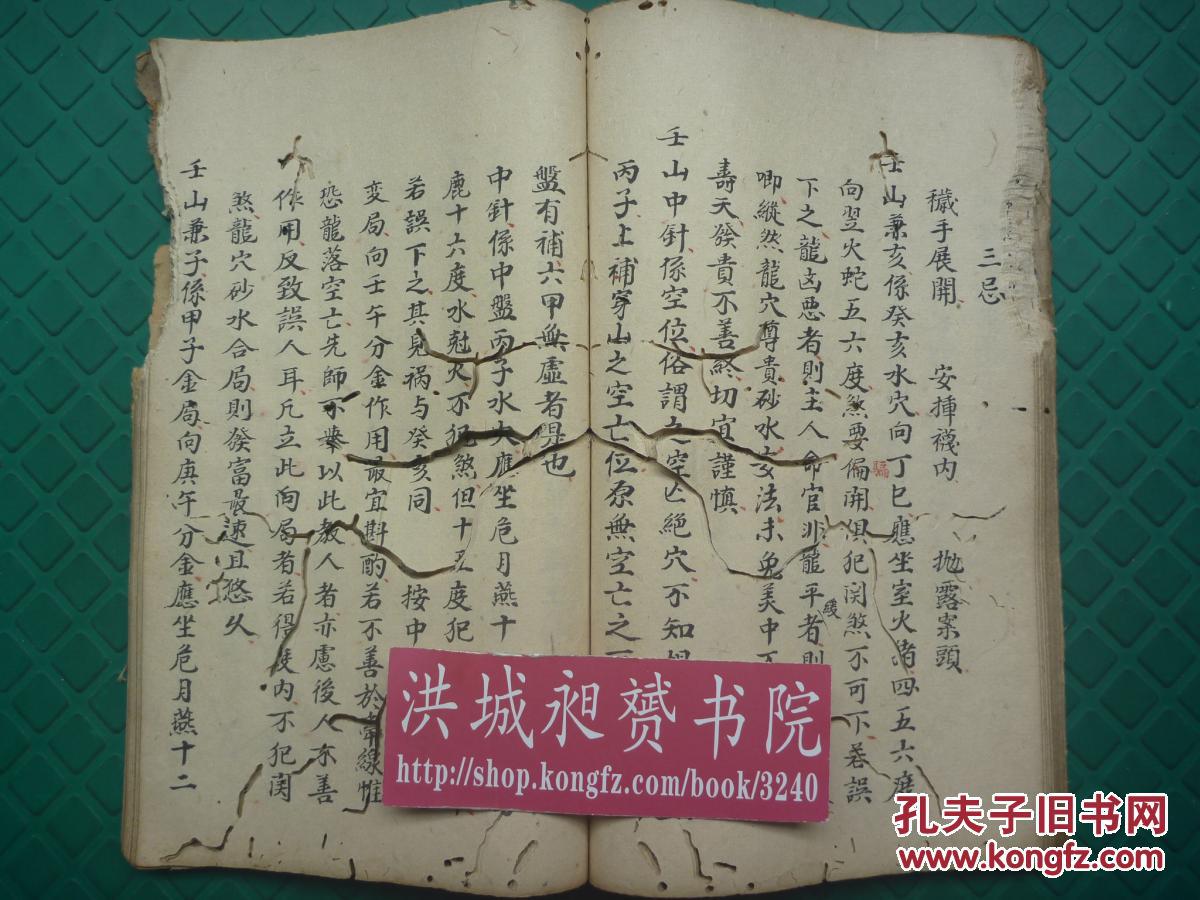 三忌
穢手展開 安揷襪内 抛露案頭
壬山兼亥係癸亥水穴向丁巳應坐室火猪四五六度
向翌火蛇五六度煞要偏開俱犯関煞不可下若誤
騙
下之龍凶惡者則主人命官非龍平者則
緩
唧縱然龍穴尊貴砂水 法未免美中不
壽夭發貴不善終切宜謹慎
壬山中針係空位俗謂之空亡絶穴不知
丙子上補穿山之空亡位原無空亡之
盤有補六甲無虛者是也
中針係中盤丙子水大應坐危月燕十
鹿十六度水尅火不犯煞但十五度犯
若誤下之其見禍与癸亥同 按中
変局向壬午分金作用最宜斟酌若不善於牽線惟
恐龍落空亡先師不舉以此教人者亦慮後人不善
作用反致誤人耳凡立此向局者若得度内不犯関
煞龍穴砂水合局則發富最速且悠久
壬山兼子係甲子金局向庚午分金應坐危月燕十二
洪城昶赟书院
http://shop.kongfz.com/book/3240
孔夫子旧书网
www.kongfz.com